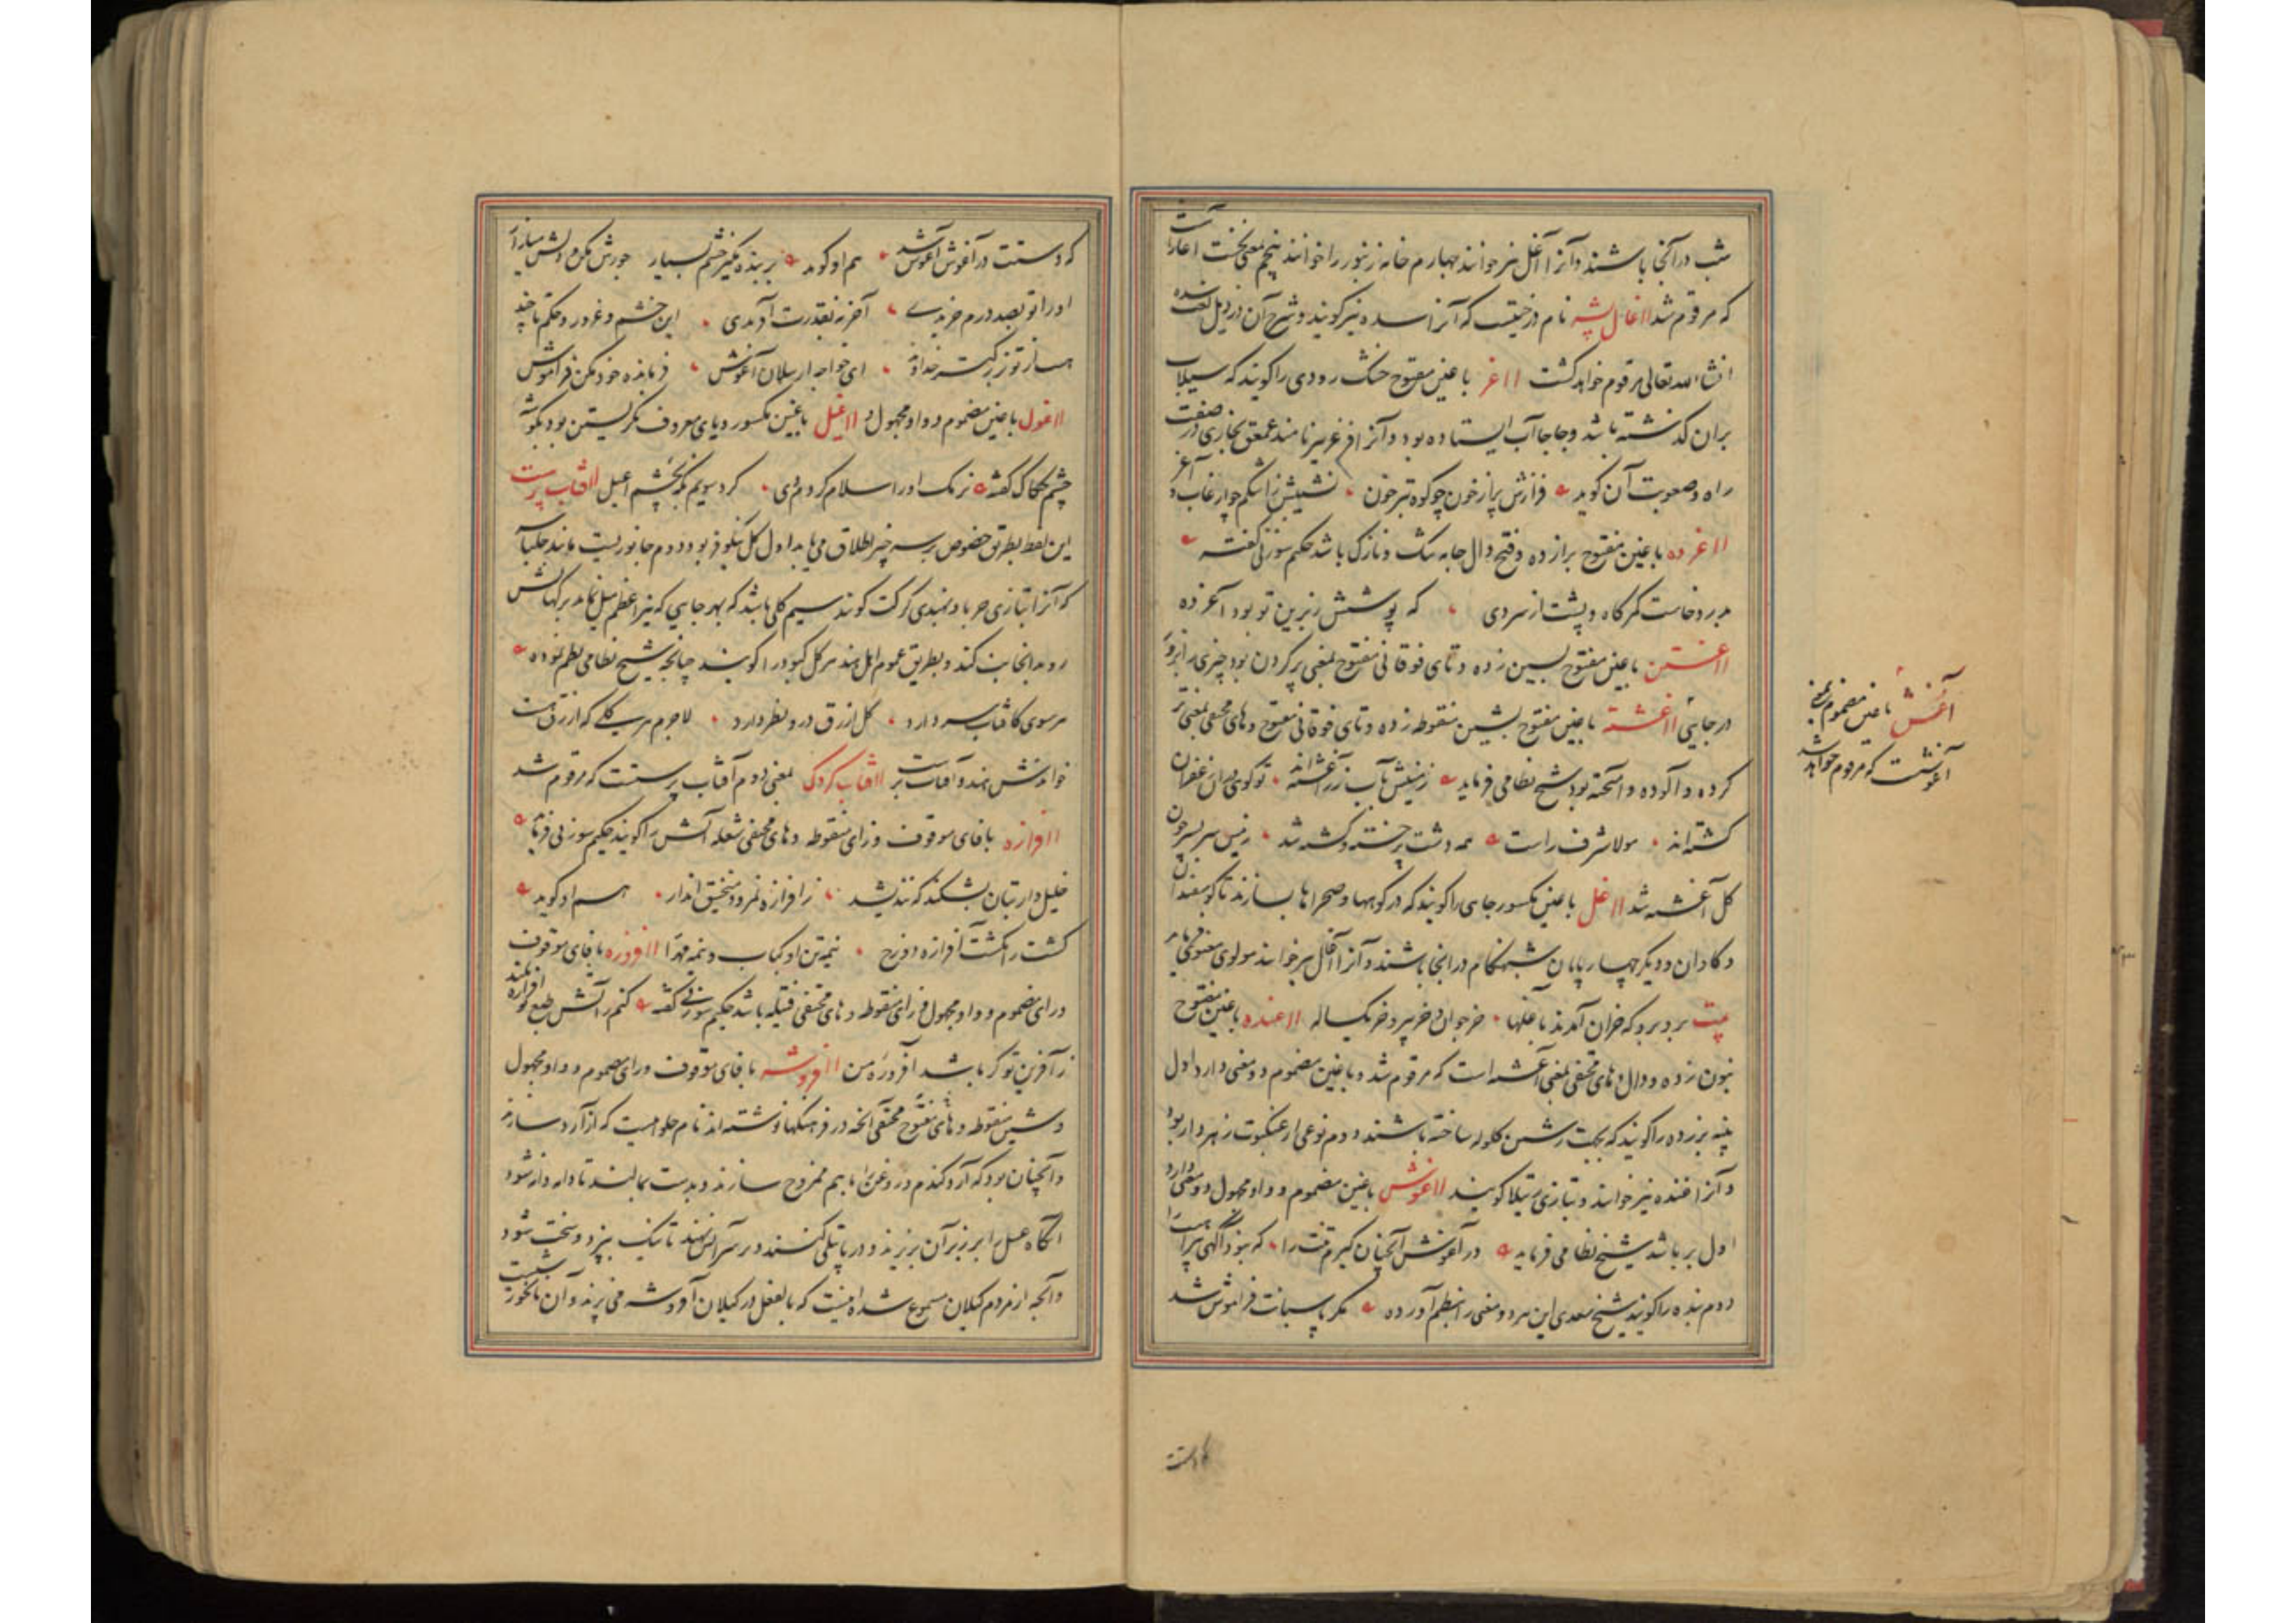 شب در آنجا باشند و آنرا آغل نیز خوانند چهارم خانه زنبور را خوانند پنجم
که مرقوم شد ااغال پشه نام درختیست که آنرا سده نیز گویند و شرح آن در ذیل لغت سده
انشاء الله تعالی مرقوم خواهد گشت ااغر با غین مفتوح خشک رودی را گویند که سیلاب
بران گذشته باشد و جاجا آب ایستاده بود و آنرا فرغر نیز نامند عمعق بخاری در صفت
راه و صعوبت آن گوید فرازش پر از خون چو کوه تبرخون نشیبش
ااغرده با غین مفتوح برا زده و فتح دال جامه تنک و نازک باشد حکیم سوزنی گفته
بدرد خاست کمرگاه و پشت از سردی که پوشش زبرین تو بود آغرده
ااغستن با غین مفتوح بسین زده و تای فوقانی مفتوح بمعنی پر کردن بود چیزی را بزور
در جایی ااغشته با غین مفتوح بشین منقوطه زده و تای فوقانی مفتوح و های مختفی بمعنی تر
کرده و آلوده و آمیخته بود شیخ نظامی فرماید زمینش بآب زر آغشته‌اند تو گویی دران زعفران
کشته‌اند مولا شرف راست همه دشت پر خسته و کشته شد زمین سربسر خون
گل آغشته شد ااغل با غین مکسور جای را گویند که در کوهها و صحراها بسازند تا گوسفندان
و گاوان و دیگر چهارپایان شبهنگام در آنجا باشند و آنرا آغال نیز خوانند مولوی معنوی فرماید
بیت برد برد که خران آمدند بآغلها خر جوان و خر پیر و خر یکساله ااغنده با غین مفتوح
بنون زده و دال و های مختفی بمعنی آغشته است که مرقوم شد و با غین مضموم دو معنی دارد اول
پنبه برزده را گویند که بجهت رشتن گلوله ساخته باشند دوم نوعی از عنکبوت زهردار بود
و آنرا غنده نیز خوانند و بتازی رتیلا گویند ااغوش با غین مضموم و واو مجهول دو معنی دارد
اول بر باشد شیخ نظامی فرماید در آغوش آنچنان گیرم تنت را که نبود آگهی پیراهنت را
دوم بنده را گویند شیخ سعدی این هر دو معنی را بنظم آورده مگر پاسبانت فراموش شد
که دستت در آغوش آغوش شد هم او گوید بر بنده مگیر خشم بسیار جورش مکن و دلش میازار
او را تو بصد درم خریدی آخر نه بقدرت آفریدی این خشم و غرور و حکم تا چند
هست از تو بزرگتر خداوند ای خواجه ارسلان و آغوش فرمانده خود مکن فراموش
ااغول با غین مضموم و واو مجهول و ااغیل با غین مکسور و یای معروف نگریستن بود بگوشه
چشم حکاک گفته نرمک او را سلام کردم دی کرد سویم نگه بچشم آغیل اافتاب پرست
این لفظ بطریق خصوص بر سه چیز اطلاق می‌یابد اول گل نیلوفر بود دوم جانوریست مانند چلپاسه
که آنرا بتازی حربا و بهندی کرکت گویند سیم گلی باشد که بهر جایی که نیر اعظم میل نماید برگهاش
رو بدانجانب کند و بطریق عموم اهل هند هر گل کبود را گویند چنانچه شیخ نظامی نظم نموده
هر سوی کافتاب سر دارد گل ازرق درو نظر دارد لاجرم هر گلی که ازرق هست
خواندش هندو آفتاب پرست اافتاب گردک بمعنی دوم آفتاب پرستست که مرقوم شد
اافرازه با فای موقوف و زای منقوطه و های مختفی شعله آتش را گویند حکیم سوزنی فرماید
خلیل‌وار بتان بشکند که نندیشد ز آفرازه نمرود و منجنیق انداز هم او گوید
کشت را کشت آفرازه دوزخ نیمه تن او کباب و نیمه مهرا اافروزه با فای موقوف
و رای مضموم و واو مجهول و زای منقوطه و های مختفی فتیله باشد حکیم سوزنی گفته کنم ز آتش طبع تو
ز آفرین تو گر باشد آفروزه من اافروشه با فای موقوف و رای مضموم و واو مجهول
و شین منقوطه و های مفتوح مختفی آنچه در فرهنگها نوشته‌اند نام حلواییست که از آرد سازند
و آنچنان بود که آرد گندم و روغن را با هم ممزوج سازند و بدست بمالند تا دانه دانه شود
آنگاه عسل را بر زبر آن بریزند و در پاتیلی کنند و بر سر آتش نهند تا نیک بپزد و سخت شود
و آنچه از مردم گیلان مسموع شده اینست که بالفعل در گیلان آفروشه می‌پزند و آن
آغش با غین مضموم بمعنی
آغوشست که مرقوم خواهد شد
که دستت